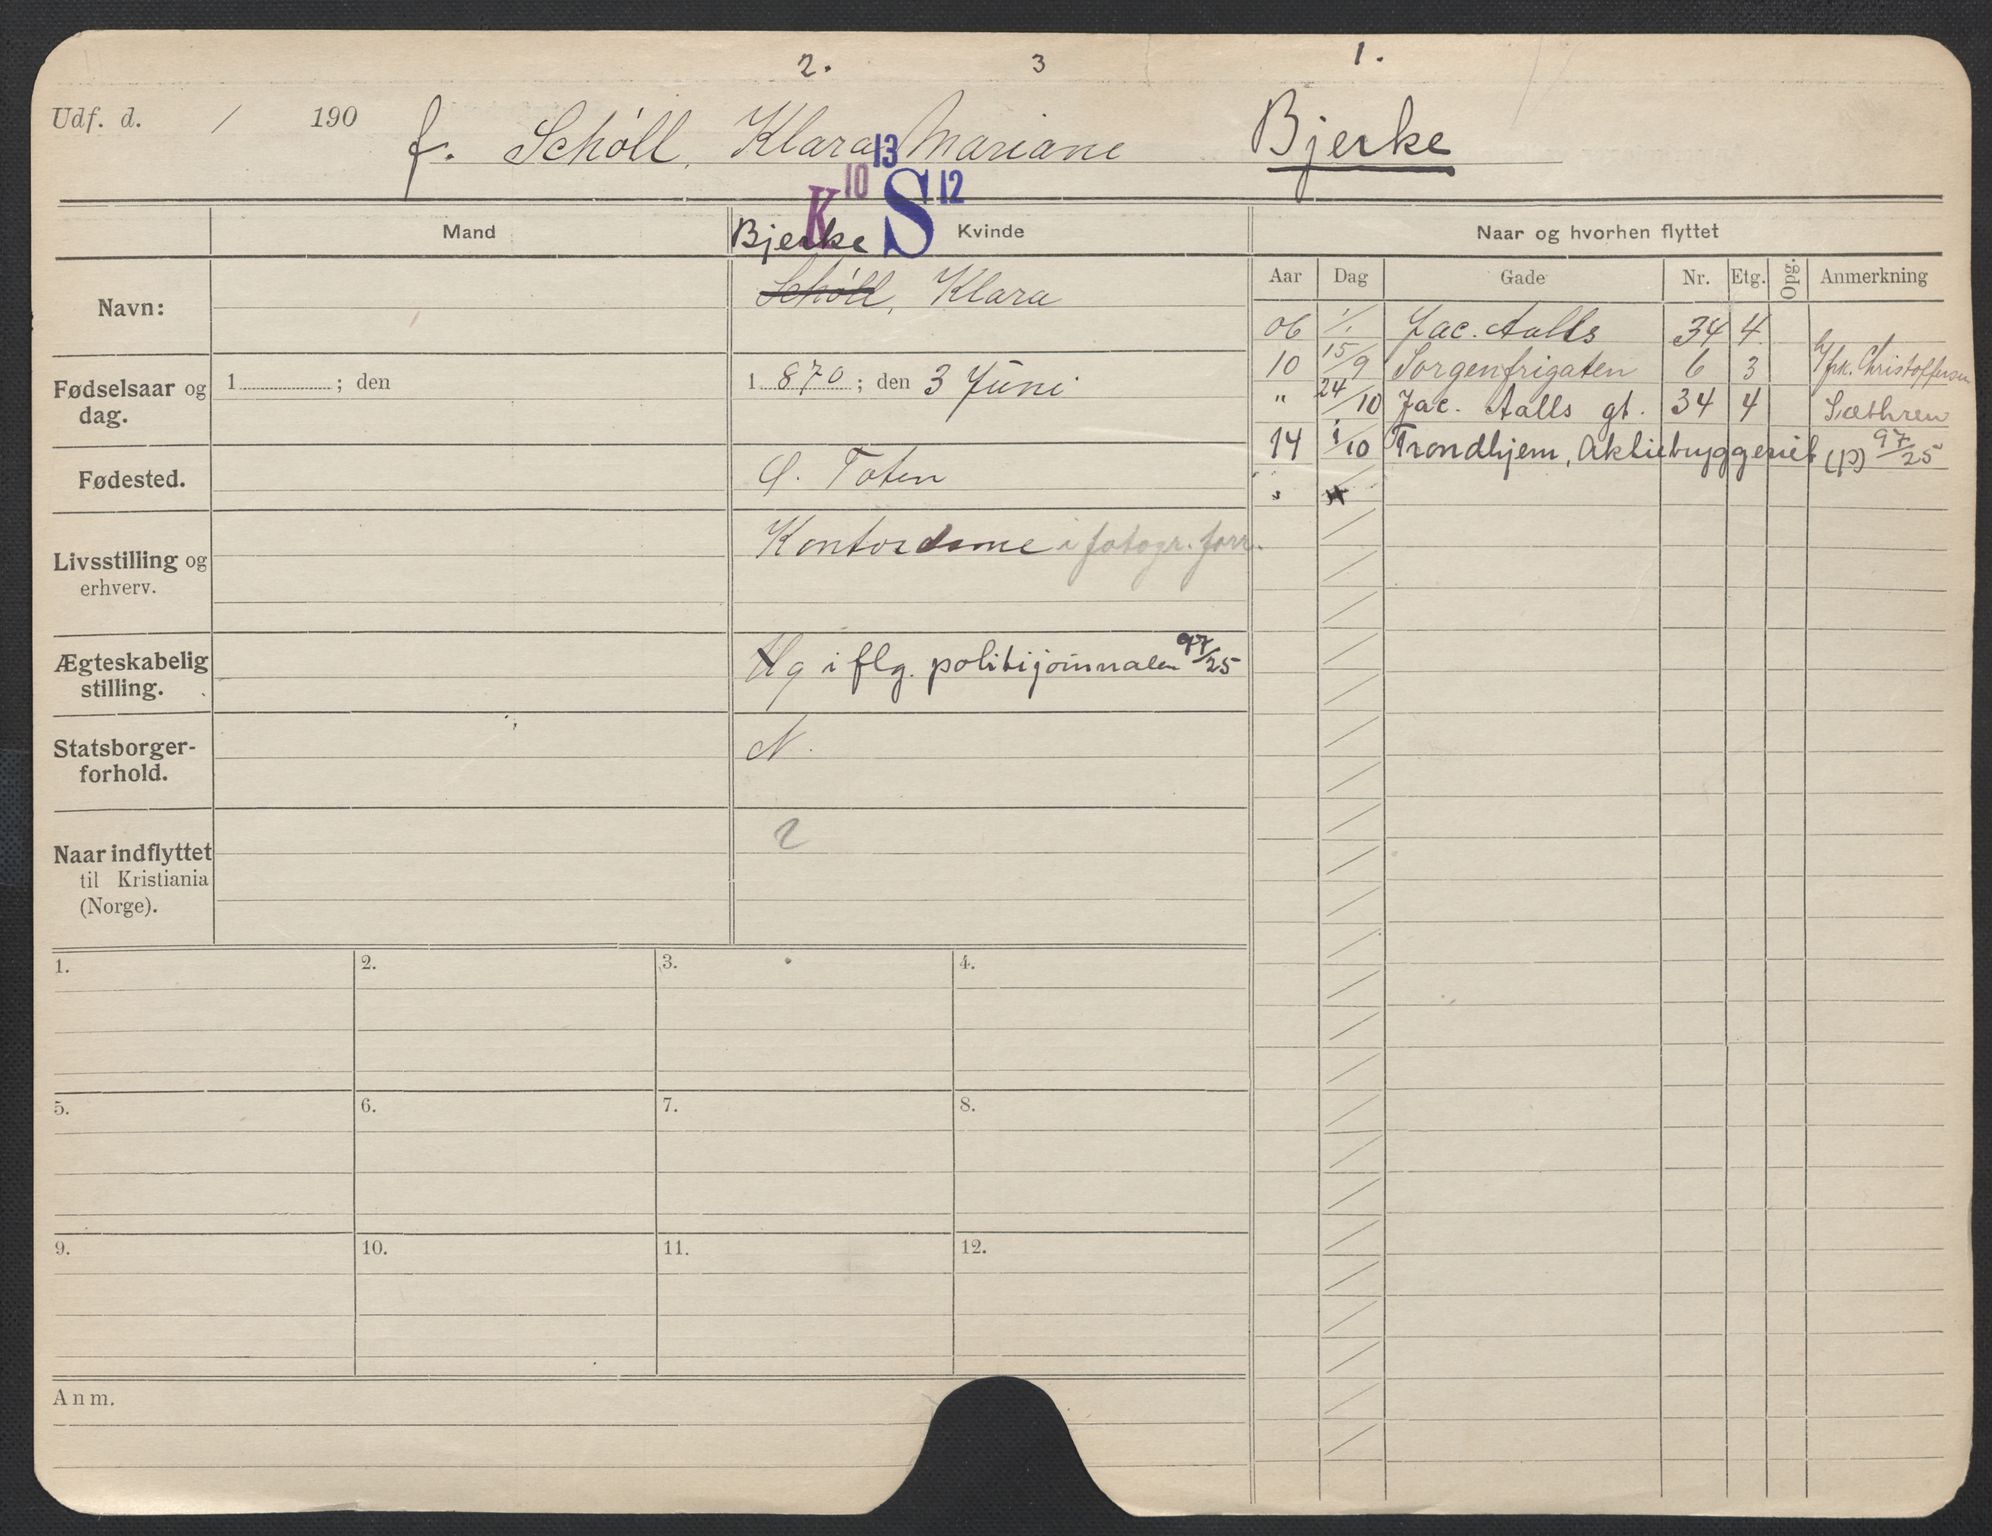 2. 3 1.
Udf. d. / 190 f. Schøll, Klara Mariane Bjerke
13
K 10 S 12
Mand Bjerke Kvinde Naar og hvorhen flyttet
Aar Dag Gade Nr. Etg. Opg. Anmerkning
Navn: Schøll, Klara
06 1/1 Jac. Aalls 34 4
10 15/9 Sorgenfrigaten 6 3 frk. Christoffersen
Fødselsaar og dag. 1 ; den 1 870 ; den 3 Juni
" 24/10 Jac. Aalls gt. 34 4 Sæthren
14 1/10 Trondhjem, Aktiebryggeriet (p) 97/25
Fødested. Ø. Toten
"
Livsstilling og erhverv. Kontordame i fotogr. forr.
Ægteskabelig stilling. Ug i flg. politijournalen 97/25
Statsborgerforhold. N.
Naar indflyttet til Kristiania (Norge). 2
1. 2. 3. 4.
5. 6. 7. 8.
9. 10. 11. 12.
Anm.